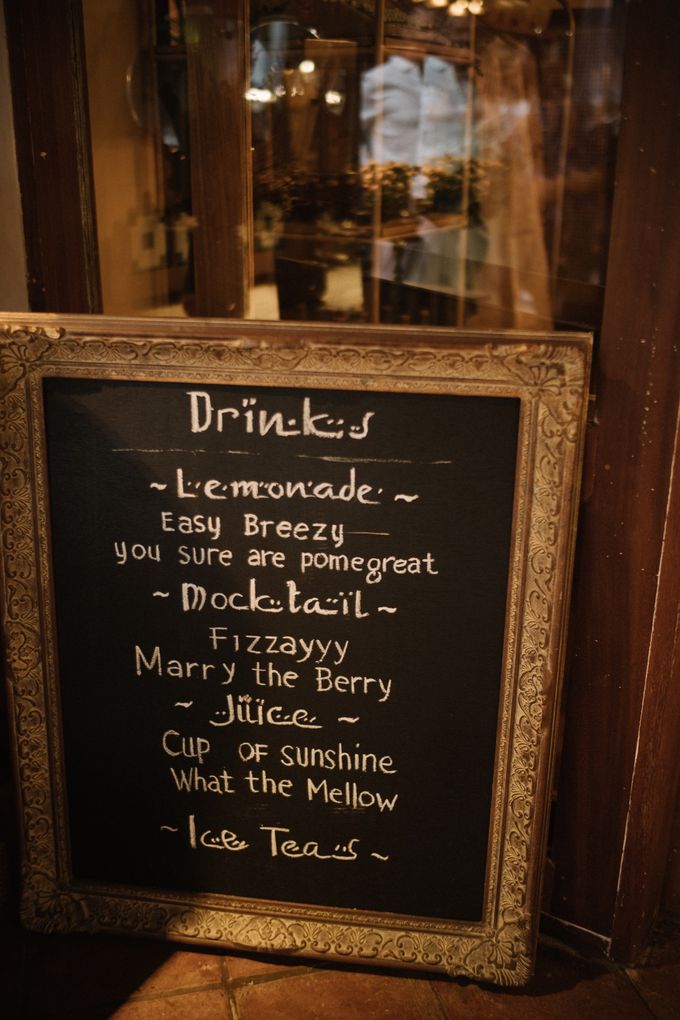 Drinks
~ Lemonade ~
Easy Breezy
you sure are pomegreat
~ Mocktail ~
Fizzayyy
Marry the Berry
~ Juice ~
Cup OF sunshine
What the Mellow
~ Ice Teas ~